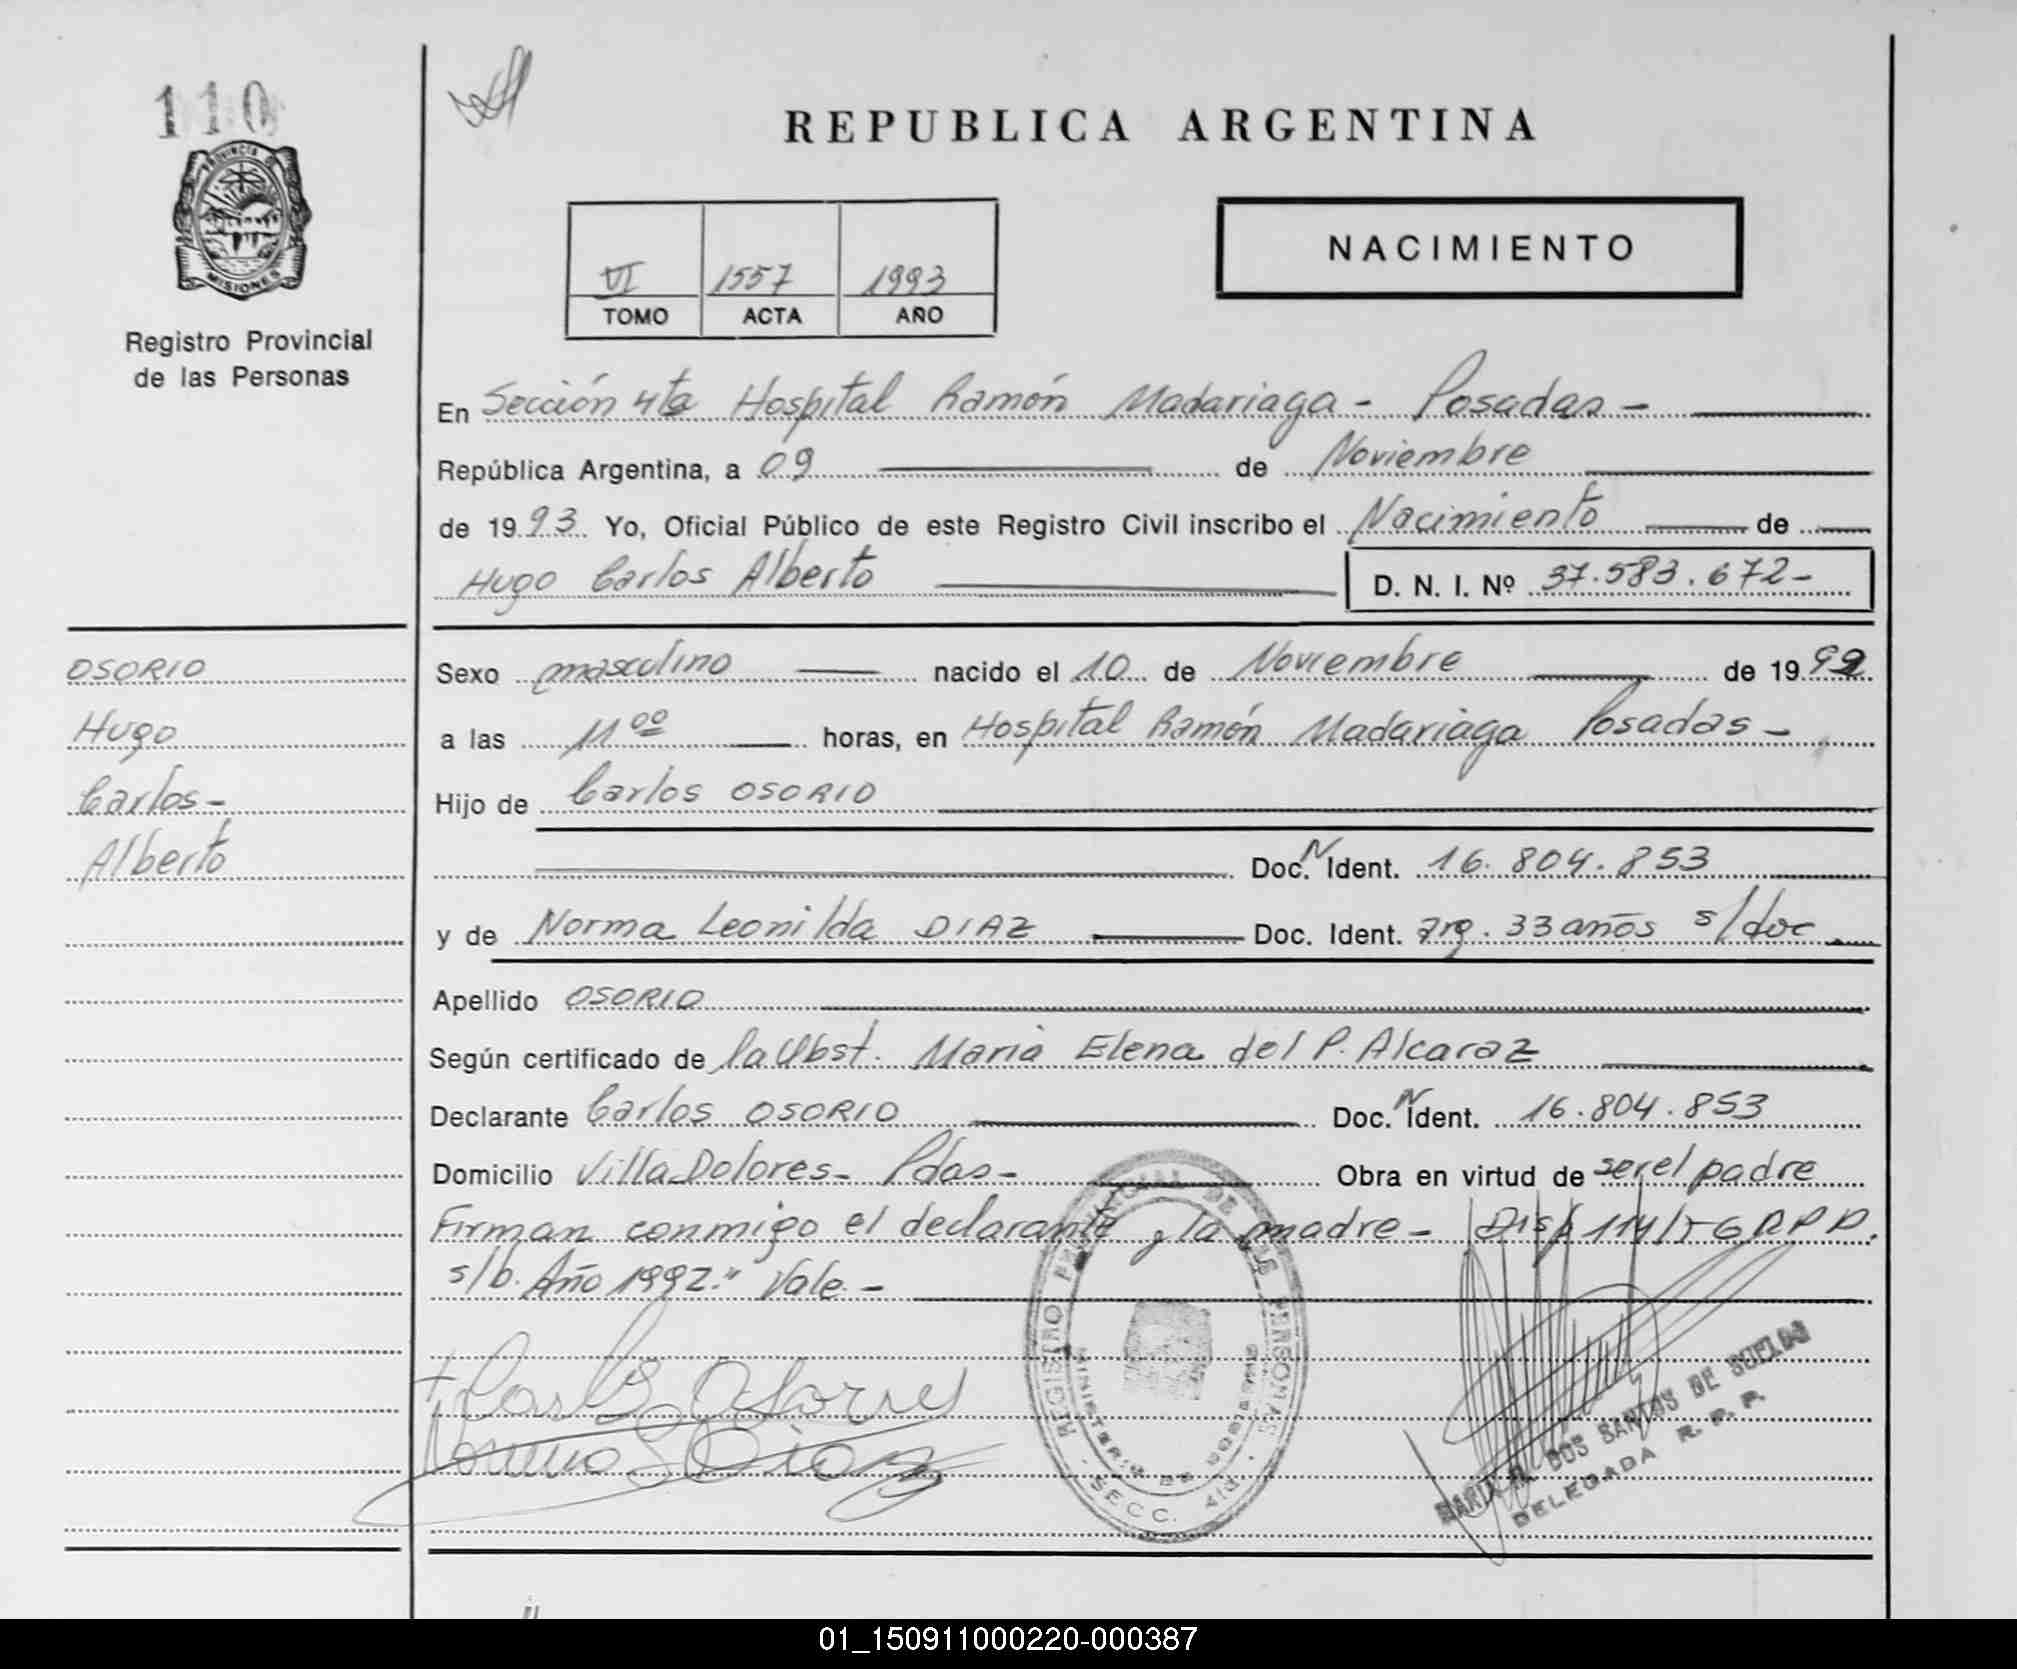 110
REPUBLICA ARGENTINA
PROVINCIA DE
MISIONES
Registro Provincial
de las Personas
VI 1557 1993
TOMO ACTA AÑO
NACIMIENTO
En Sección 4ta Hospital Ramón Madariaga - Posadas -
República Argentina, a 09 de Noviembre
de 1993 Yo, Oficial Público de este Registro Civil inscribo el Nacimiento de
Hugo Carlos Alberto D. N. I. Nº 37.583.672-
OSORIO
Hugo
Carlos-
Alberto
Sexo masculino nacido el 10 de Noviembre de 1992
a las 11 00 horas, en Hospital Ramón Madariaga Posadas -
Hijo de Carlos OSORIO
Doc. N Ident. 16.804.853
y de Norma Leonilda DIAZ Doc. Ident. arg. 33 años s/doc
Apellido OSORIO
Según certificado de la Obst. Maria Elena del P. Alcaraz
Declarante Carlos OSORIO Doc. N Ident. 16.804.853
Domicilio Villa Dolores - Pdas - Obra en virtud de ser el padre
Firman conmigo el declarante y la madre - Disp 114/
s/b. Año 1992." Vale. -
REGISTRO PROVINCIAL DE LAS PERSONAS
MINISTERIO DE GOBIERNO
SECC. 4ta
Norma L Diaz
DOS SANTOS DE
DELEGADA R. P. P.
01_150911000220-000387